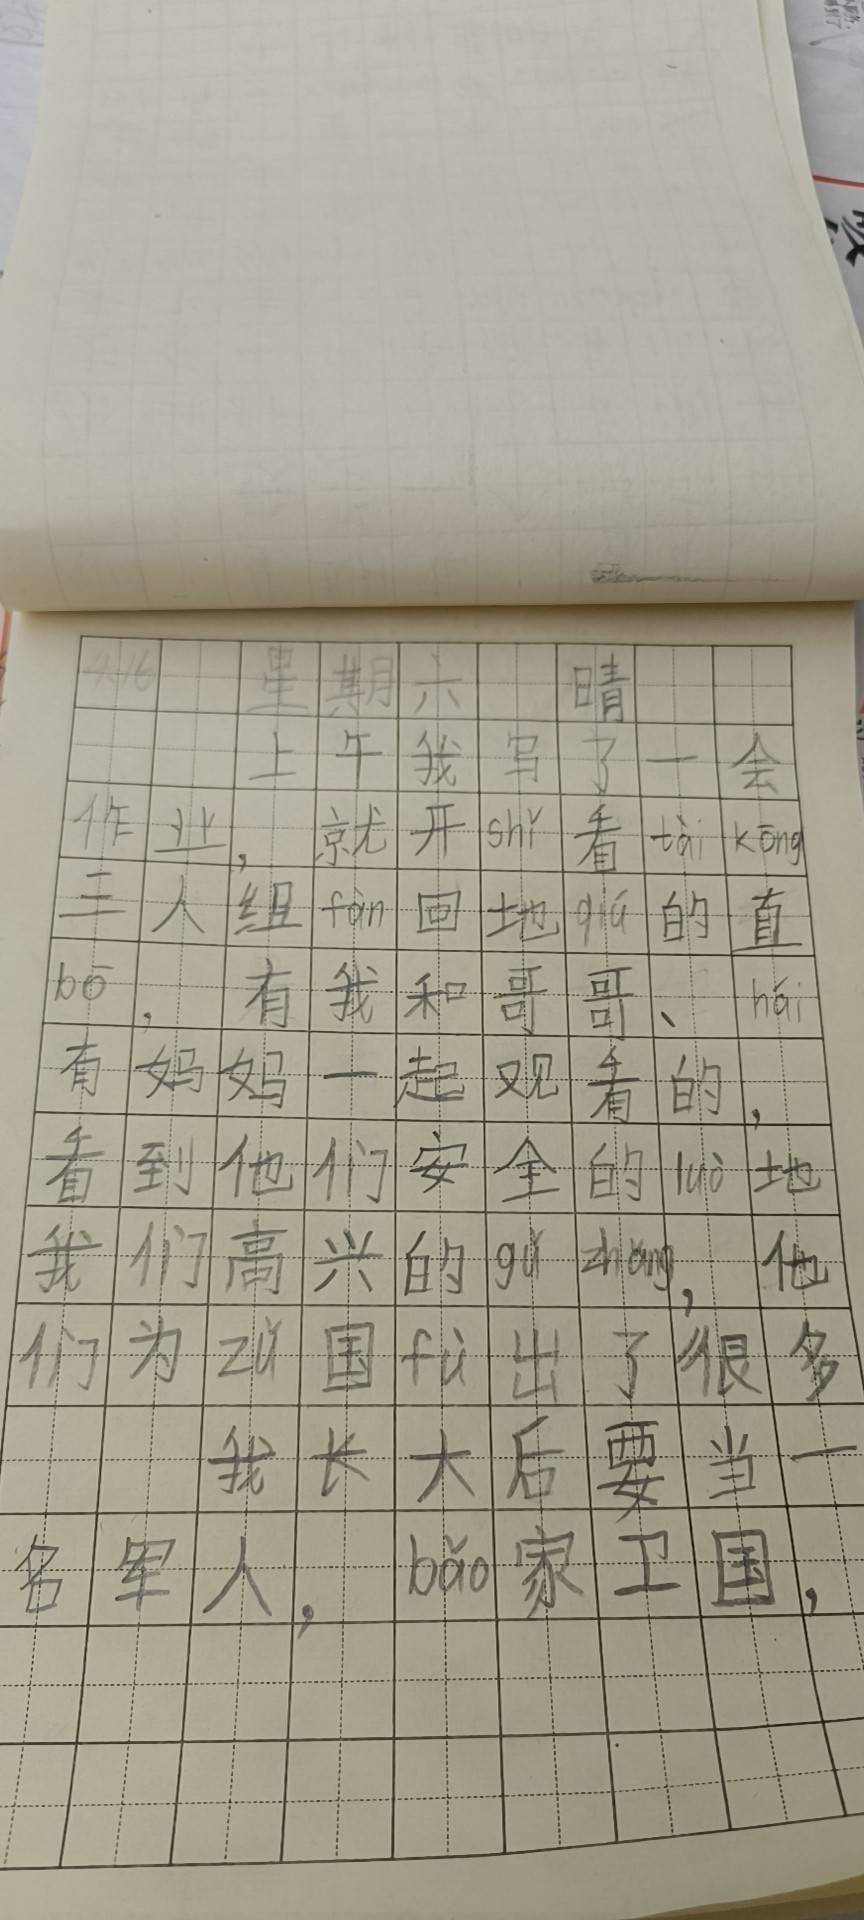 4.16 星期六 晴
上午我写了一会
作业，就开shǐ看tài kōng
三人组fǎn回地qiú的直
bō，有我和哥哥、hái
有妈妈一起观看的，
看到他们安全的luò地
我们高兴的gǔ zhǎng，他
们为zǔ国fù出了很多
我长大后要当一
名军人，bǎo家卫国，